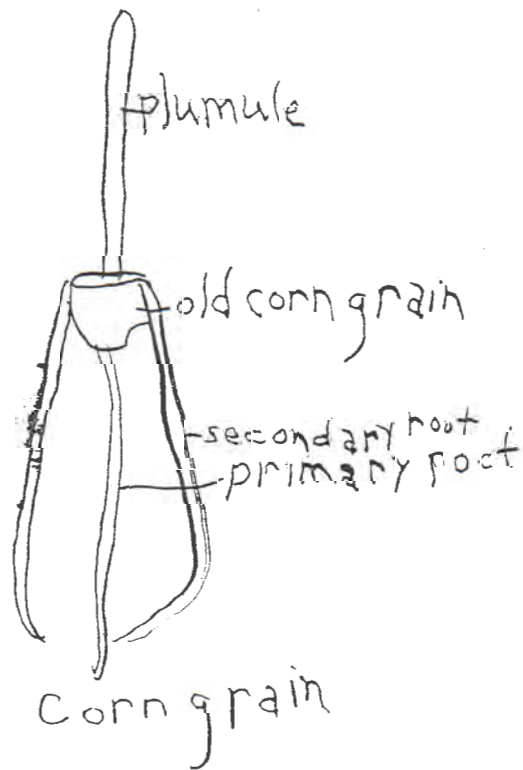 plumule
old corn grain
secondary root
primary root
corn grain